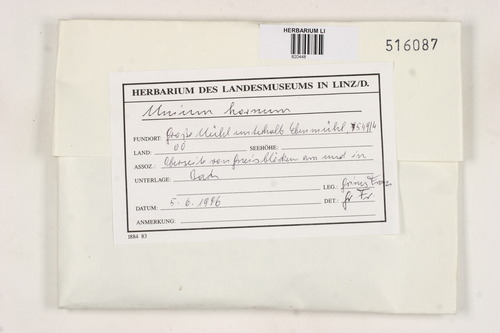 HERBARIUM LI
820448
516087
HERBARIUM DES LANDESMUSEUMS IN LINZ/D.
Mnium hornum
FUNDORT: Große Mühl unterhalb Ebenmühl, 7549/4
LAND: OÖ SEEHÖHE:
ASSOZ.: Oberseite von Gneisblöcken am und in
UNTERLAGE: Bach
LEG.: Grims Franz
DATUM: 5. 6. 1996 DET.: Gr Fr
ANMERKUNG:
1884 83